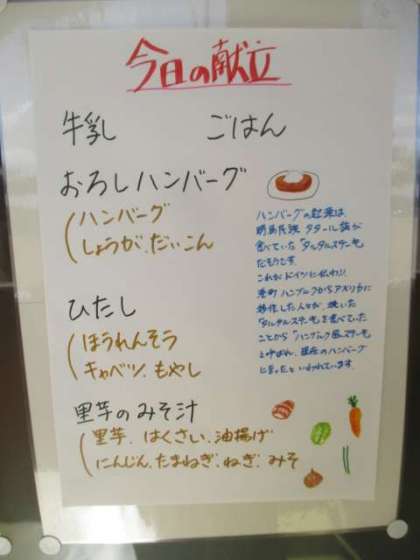 今日の献立
牛乳 ごはん
おろしハンバーグ
ハンバーグ
しょうが、だいこん
ハンバーグの起源は、
騎馬民族 タタール族が
食べていた「タルタルステーキ」
だそうです。
これがドイツに伝わり、
港町 ハンブルクからアメリカに
移住した人々が 焼いた
「タルタルステーキ」を食べていた
ことから「ハンブルク風ステーキ」
と呼ばれ、現在のハンバーグ
になったといわれています。
ひたし
ほうれんそう
キャベツ、もやし
里芋のみそ汁
里芋、はくさい、油揚げ
にんじん、たまねぎ、ねぎ、みそ